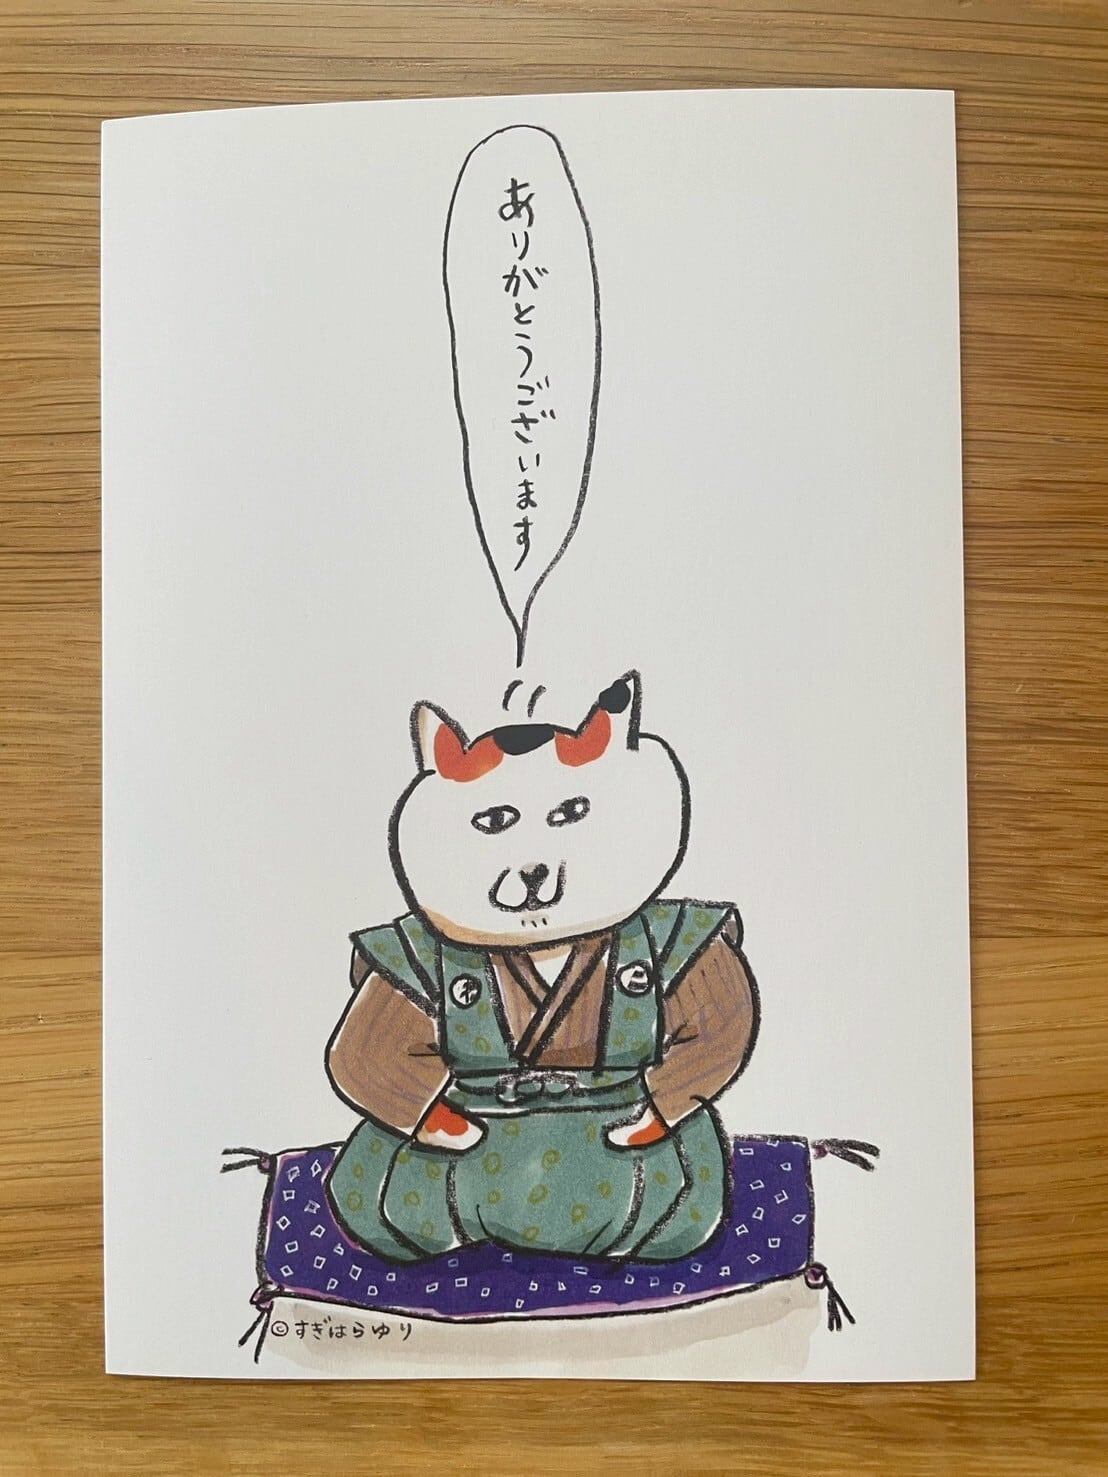 ありがとうございます
©すぎはらゆり